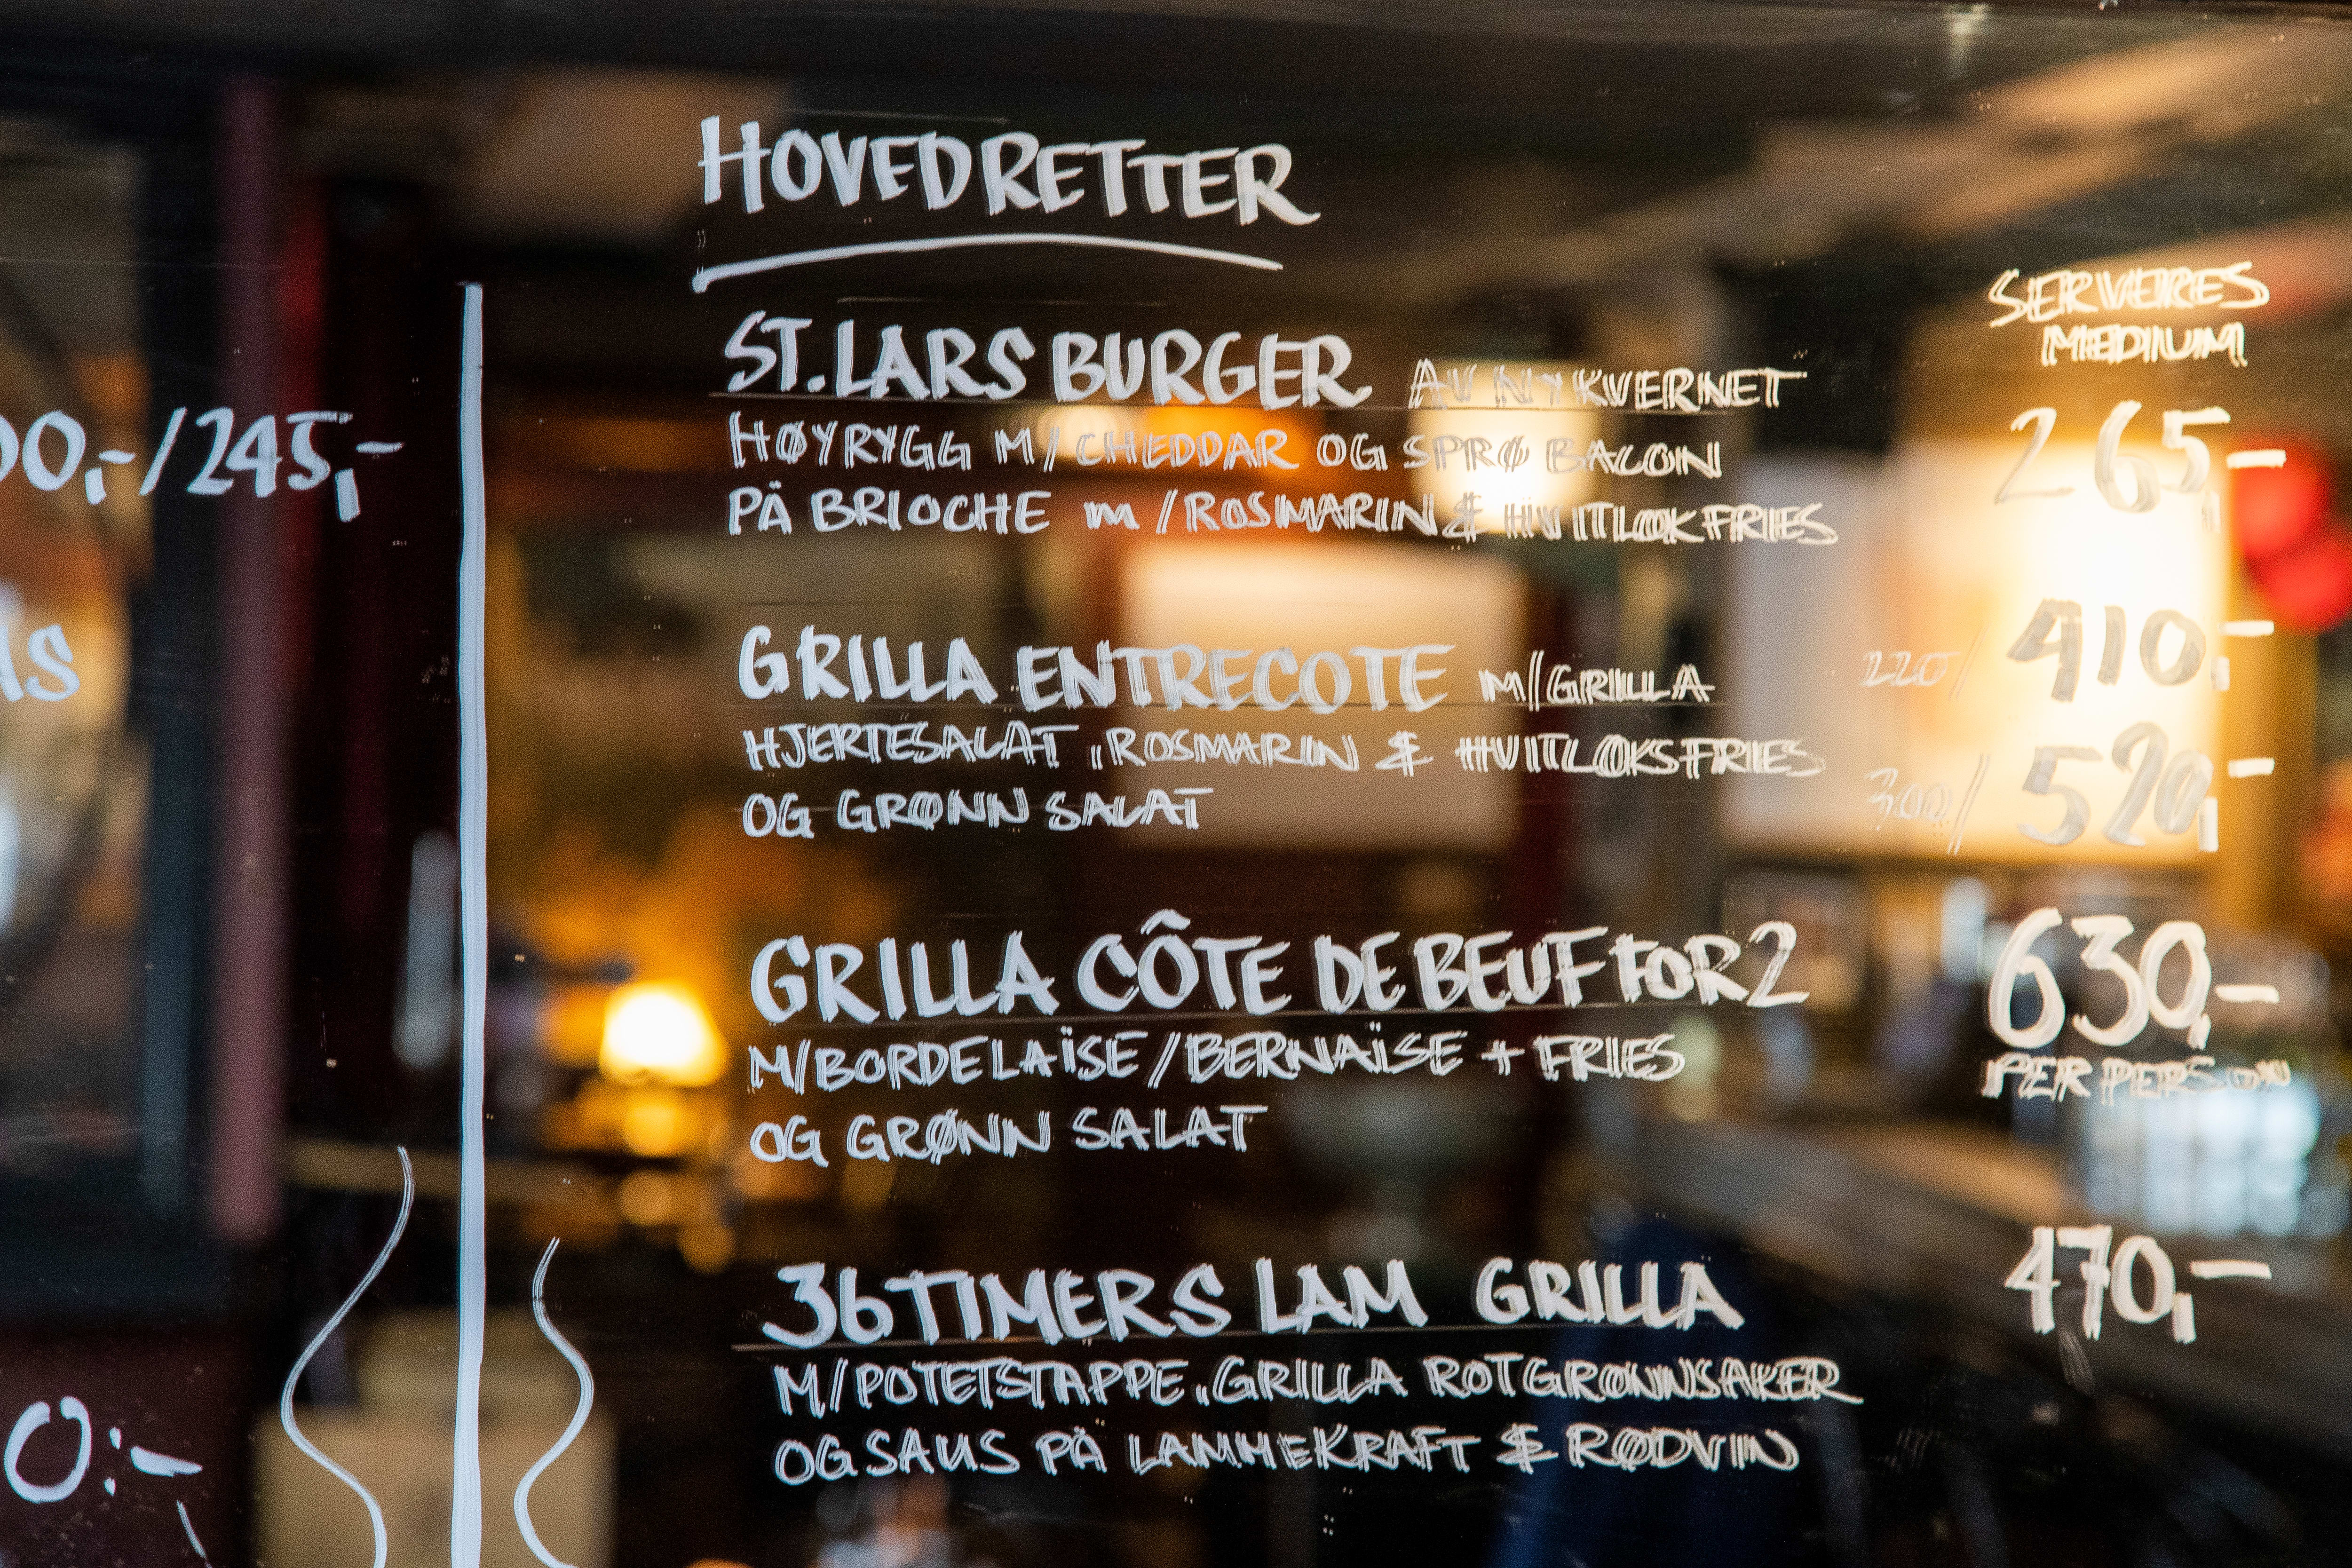 HOVEDRETTER
SERVERES
MEDIUM
ST. LARS BURGER AV NYKVERNET
265,-
HØYRYGG M/ CHEDDAR OG SPRØ BACON
PÅ BRIOCHE m/ROSMARIN & HVITLØKFRIES
00,-/245,-
AS
GRILLA ENTRECOTE M/GRILLA
220/ 410,-
HJERTESALAT, ROSMARIN & HVITLØKSFRIES
300/ 520,-
OG GRØNN SALAT
GRILLA CÔTE DE BEUF FOR 2
630,-
M/BORDELAÏSE/BERNAÏSE + FRIES
PER PERSON
OG GRØNN SALAT
36 TIMERS LAM GRILLA
470,-
M/POTETSTAPPE, GRILLA ROTGRØNNSAKER
OG SAUS PÅ LAMMEKRAFT & RØDVIN
0:-